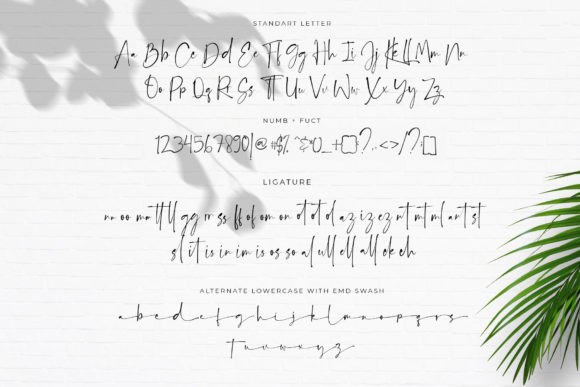 STANDART LETTER
Aa Bb Cc Dd Ee Ff Gg Hh Ii Jj Kk Ll Mm Nn
Oo Pp Qq Rr Ss Tt Uu Vv Ww Xx Yy Zz
NUMB + FUCT
1234567890!@#$% ^&*()_+{}:?.,<>/!?:[]
LIGATURE
nn oo mm tt ll gg rr ss ff of om on ot ot ol az iz ez nt mt ml ant st
sl it is in im is os so al ull ell all ek eh
ALTERNATE LOWERCASE WITH EMD SWASH
a b c d e f g h i j k l m n o p q r s
t u v w x y z